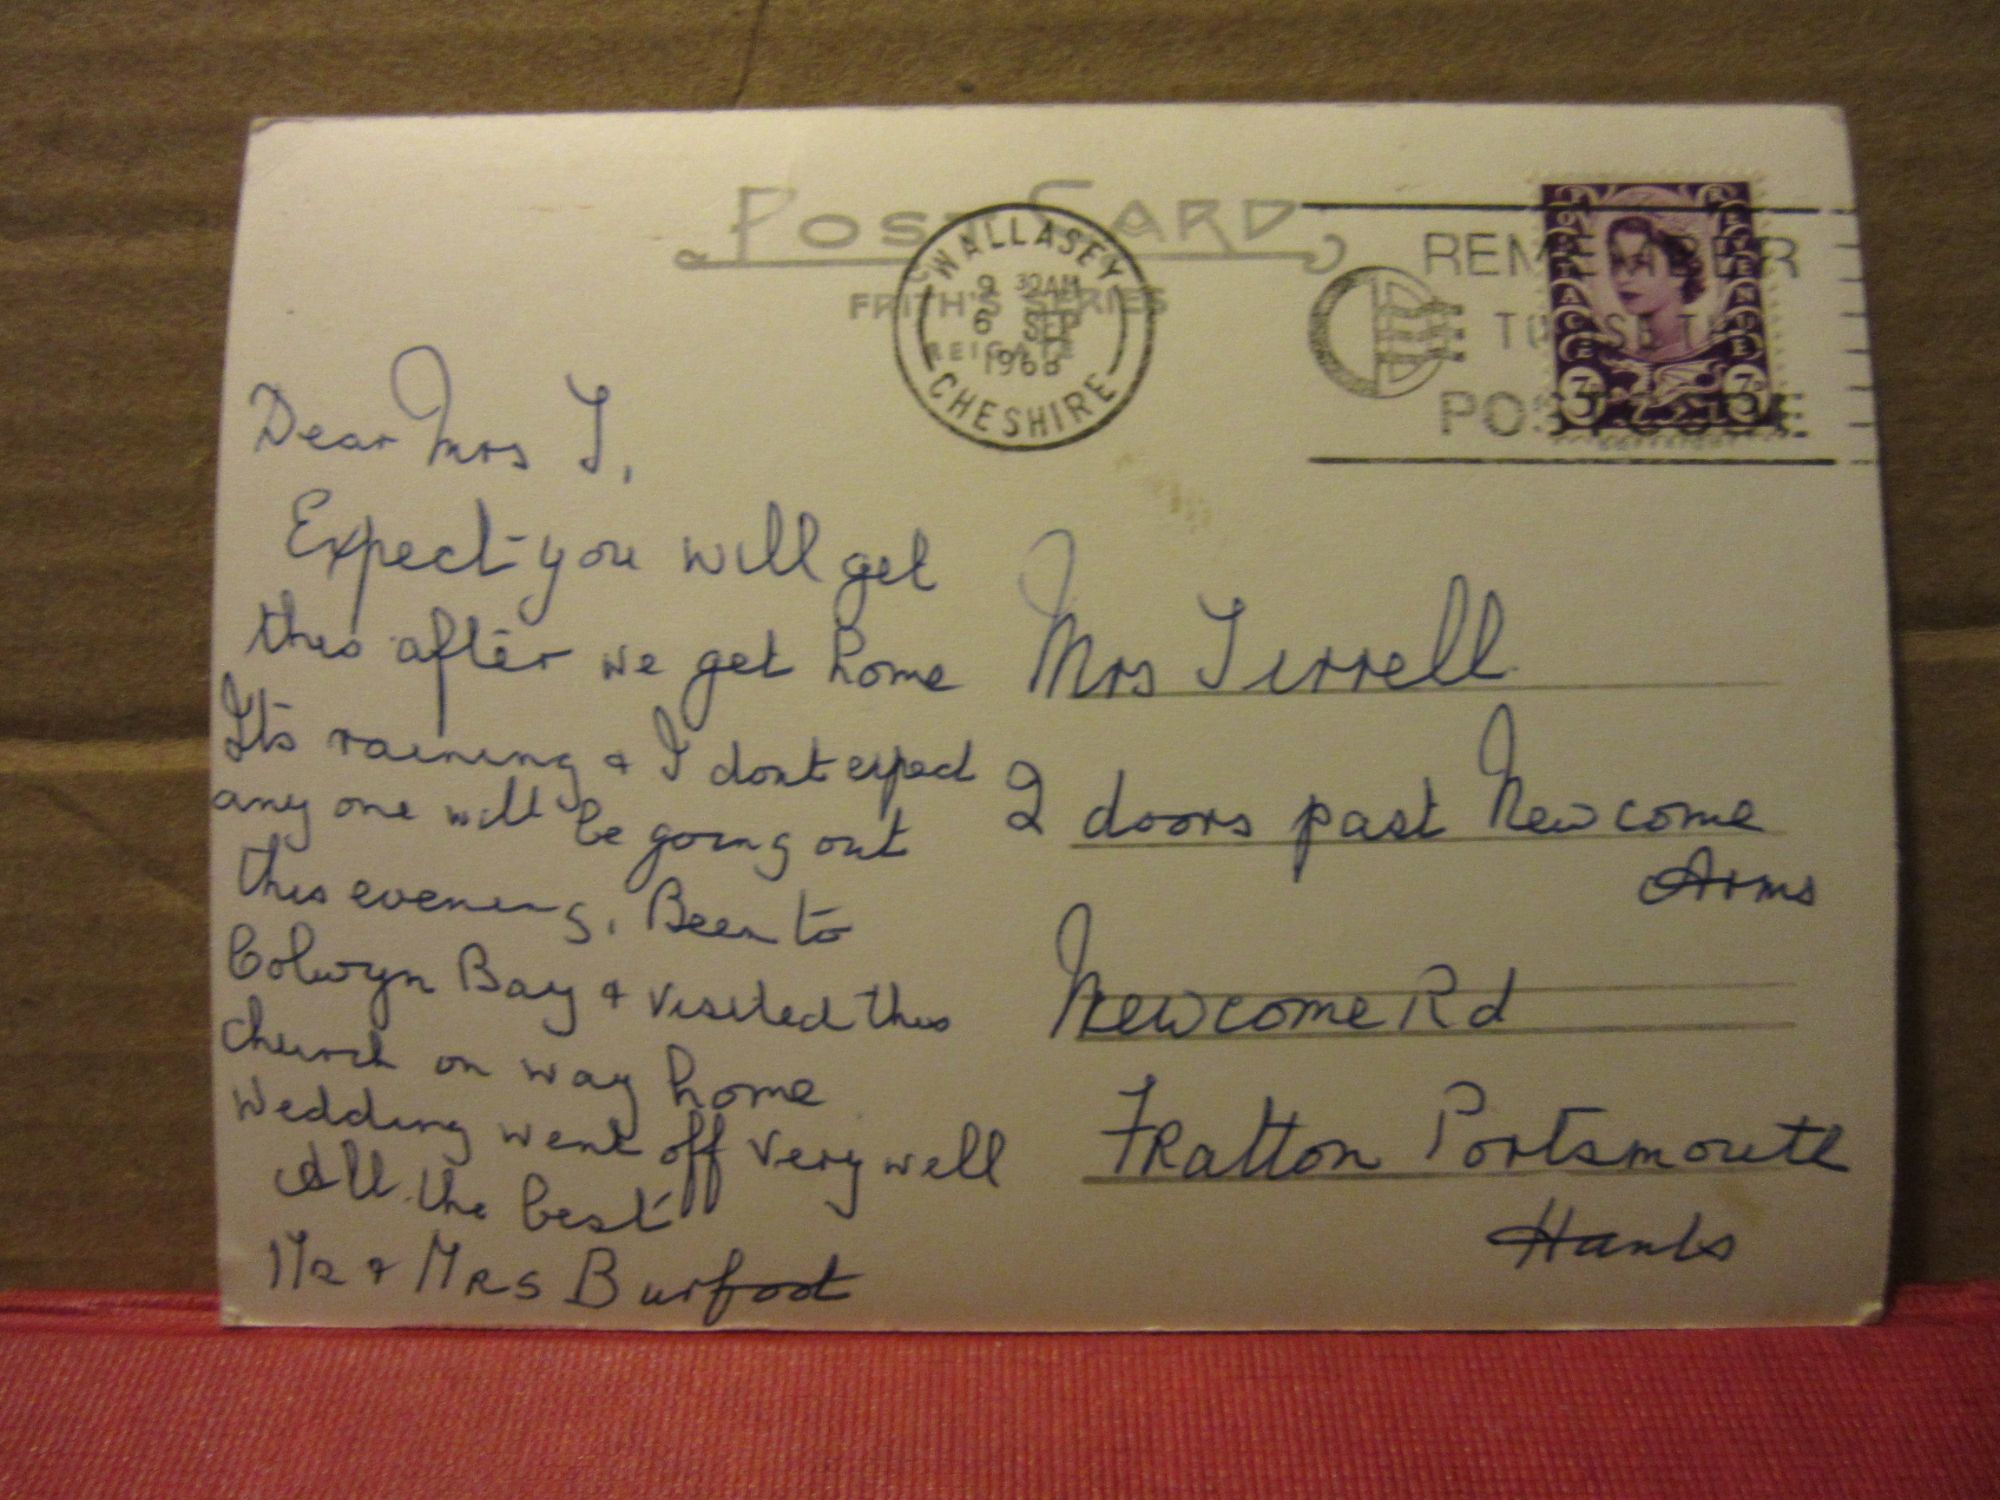 POST CARD
FRITH'S SERIES
REIGATE
WALLASEY
9 30AM
6 SEP
CHESHIRE
REMEMBER
TO USE THE
POST CODE
POSTAGE
REVENUE
3D 3D
Dear Mrs T,
Expect you will get
this after we get home
It's raining & I dont expect
any one will be going out
this evening. Been to
Colwyn Bay & visited this
church on way home
Wedding went off very well
All the best
Mr & Mrs Burfoot
Mrs Tirrell
2 doors past Newcome
Arms
Newcome Rd
Fratton Portsmouth
Hants